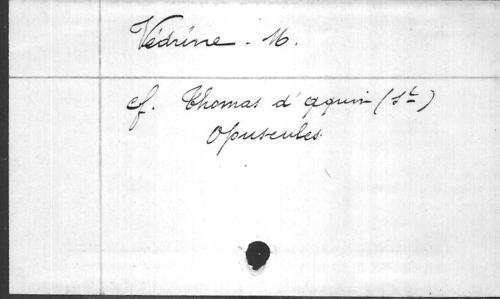 Védrine - M.
cf. Thomas d'Aquin (St)
Opuscules